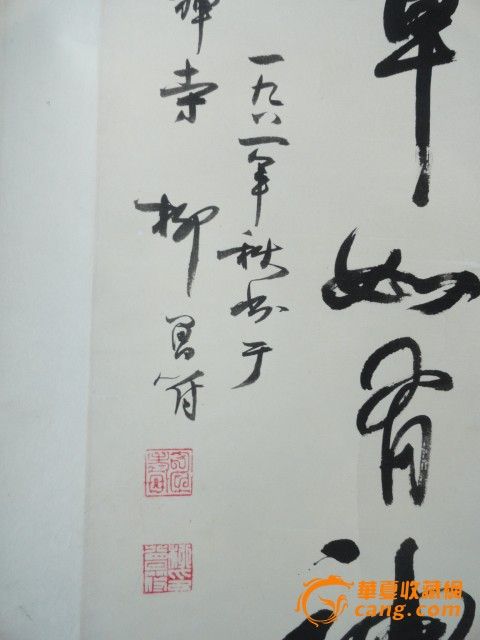 如有神
一九八一年秋书于
禅寺 柳曾符
華夏收藏網
cang.com